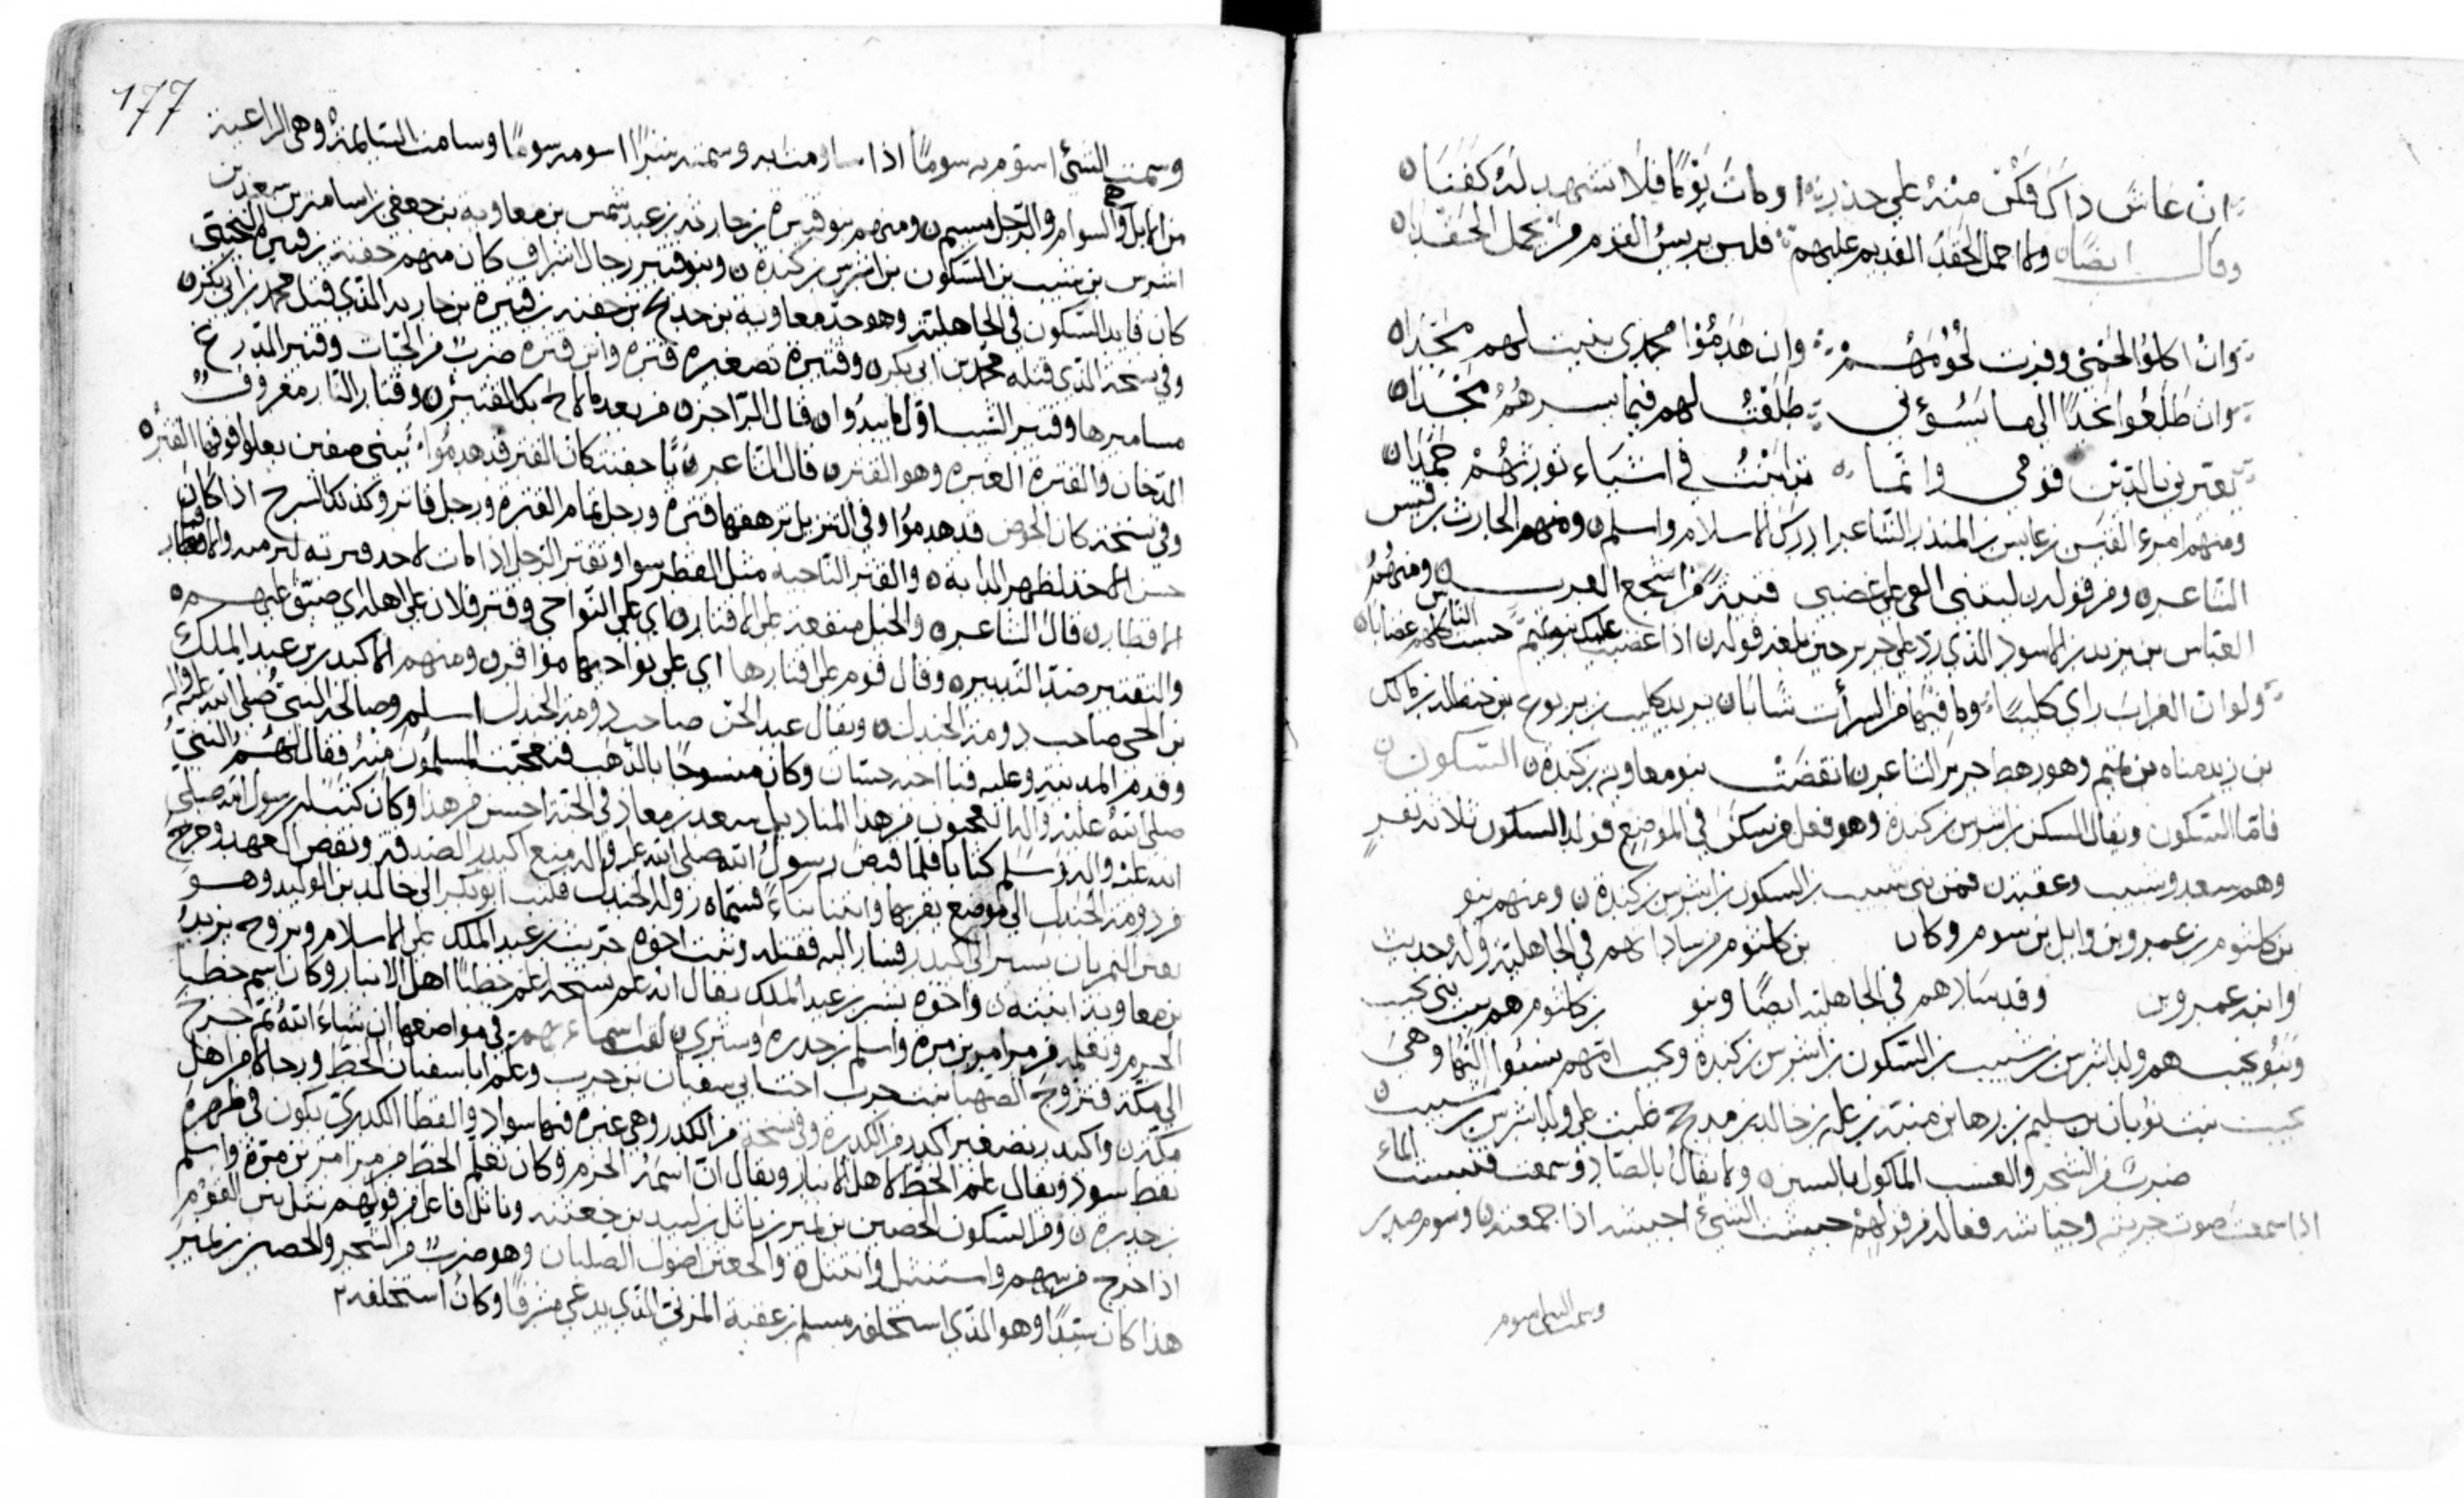 ان عاش ذاك فكن منه على حذر او مات يوما فلا تشهد له كفنا
وقال ايضا ولا احمل الحقد القديم عليهم فليس رئيس القوم من يحمل الحقدا
وان اكلوا لحمي وفرت لحومهم وان هدموا مجدي بنيت لهم مجدا
وان طلعوا نجدا الى ما يسوؤني طلعت لهم فيما يسرهم نجدا
يعيرني بالدين قومي وانما تداينت في اشياء تورثهم حمدا
ومنهم امرء القيس بن عابس بن المنذر الشاعر ادرك الاسلام واسلم ومنهم الحارث بن قيس
الشاعر ومن قوله العرب ومنهم
العباس بن يزيد بن الاسود الذي رد على جرير حين بلغه قوله اذا غضبت عليك بنو تميم حسبت الناس كلهم غضابا
ولو ان الغراب راى كليبا وما فيها من السوآت شابا يريد كليب بن يربوع بن حنظلة بن مالك
بن زيد مناه بن تميم وهو رهط جرير الشاعر انقضت بنو معاوية بن كندة السكون
فاما السكون ويقال السكن بن اشرس بن كندة وهو فعل من سكن في الموضع فولد السكون ثلاثة نفر
وهم سعد وشبيب وعقبة فمن بني شبيب بن السكون بن اشرس بن كندة ومنهم بنو
بن كلثوم بن عمرو بن وايل بن سوم وكان بن كلثوم من ساداتهم في الجاهلية وله حديث
وابنه عمرو بن وقد سادهم في الجاهلية ايضا وبنو بن كلثوم هم بيت بني تجيب
وبنو تجيب هم ولد اشرس بن شبيب بن السكون بن اشرس بن كندة وتجيب امهم نسبوا اليها وهي
تجيب بنت ثوبان بن سليم بن رها بن منبه بن عله بن خالد بن مدحج غلبت على ولد اشرس بن شبيب
ضرب من الشجر والعسب الماكول بالسين ولا يقال بالصاد وسمعت قسيب الماء
اذا سمعت صوت جريته حبشت الشئ احبشه اذا جمعته وسوم مصدر
وسمت الشئ اسوم
177
وسمت الشئ اسومه سوما اذا ساومت به وسمته شرا اسومه سوما وسامت السايمة وهي الراعية
من الابل وهي السوام والرجل مسيم ومنهم بنو قتيرة بن حارثة بن عبد شمس بن معاوية بن جعفر بن اسامة بن سعد بن
اشرس بن شبيب بن السكون بن اشرس بن كندة وبنو قتيره رجال اشراف كان منهم جفنة بن قتيرة التجيبي
كان قايد السكون في الجاهلية وهو جد معاوية بن حديج بن جفنه بن قتيرة بن حارثه الذي قتل محمد بن ابي بكر
وفي نسخة الذي قتله محمد بن ابي بكر وقتيرة تصغير قترة وابن قترة ضرب من الحيات وقتير الدرع
مساميرها وقتير الشيب اول ما يبدوا قال الراجز من بعد ما لاح بك القتير وقتار النار معروف
الدخان والقترة الغبرة وهو القتر قال الشاعر يا جفنة كان القتر قد هدموا بثني صفين يعلوا فوقها القتر
وفي نسخة كان الحوض قد هدموا وفي التنزيل ترهقها قترة ورجل قاتر وكذلك السرج اذا كان
حسن الاخذ لظهر الدابة والقتر الناحيه مثل القطر سوا
الاقطار قال الشاعر والخيل مقعية على الاقتار اي على النواحي وقتر فلان على اهله اي ضيق عليهم
والتقتير ضد التبذير وقال قوم على اقتارها اي على نواحيها ومنهم الاكيدر بن عبد الملك
بن الحي صاحب دومة الجندل ويقال عبد الجن صاحب دومة الجندل اسلم وصالحه النبي صلى الله عليه واله
وقدم المدينة وعليه قبا وكان منسوجا بالذهب فتعجبت المسلمون منه فقال لهم النبي
صلى الله عليه واله اتعجبون من هذا المناديل سعد بن معاذ في الجنة احسن من هذا وكان كتب له رسول الله صلى
الله عليه واله وسلم كتابا فلما قبض رسول الله صلى الله عليه واله منع اكيدر الصدقة ونقض العهد وخرج
من دومة الجندل الى موضع بقربها وابتنا بناء فسماه دومة الجندل فكتب ابو بكر الى خالد بن الوليد وهو
بعين التمر بان يسير الى اكيدر فسار اليه فقتله وثبت اخوه حريث بن عبد الملك على الاسلام وتزوج يزيد
بن معاوية ابنته واخوه بشر بن عبد الملك يقال انه علم خطنا اهل الانبار وكان اسم خطنا
الجزم وتعلمه من مرامر بن مرة واسلم بن جدرة وستري اسماءهم في مواضعها ان شاء الله ثم خرج
الى مكة فتزوج الصهبا بنت حرب اخت ابي سفيان بن حرب وعلم ابا سفيان الخط ورجالا من اهل
مكة واكيدر تصغير اكدر من الكدرة وفي نسخة من الكدر وهي غبرة فيها سواد والقطا الكدري تكون في ظهره
نقط سود ويقال علم الخط لاهل الانبار ويقال ان اسمه الجزم وكان تعلم الخط من مرامر بن مرة واسلم
بن جدرة ومن السكون الحصين بن نمير بن ناتل بن لبيد بن جعثنه وناتل فاعل من قولهم نتل بين القوم
اذا خرج من بينهم واستنتل وانتتل والجعثن اصول الصليان وهو ضرب من الشجر والحصين بن نمير
هذا كان سيدا وهو الذي استخلفه مسلم بن عقبة المزني الذي يدعى مسرفا وكان استخلفه